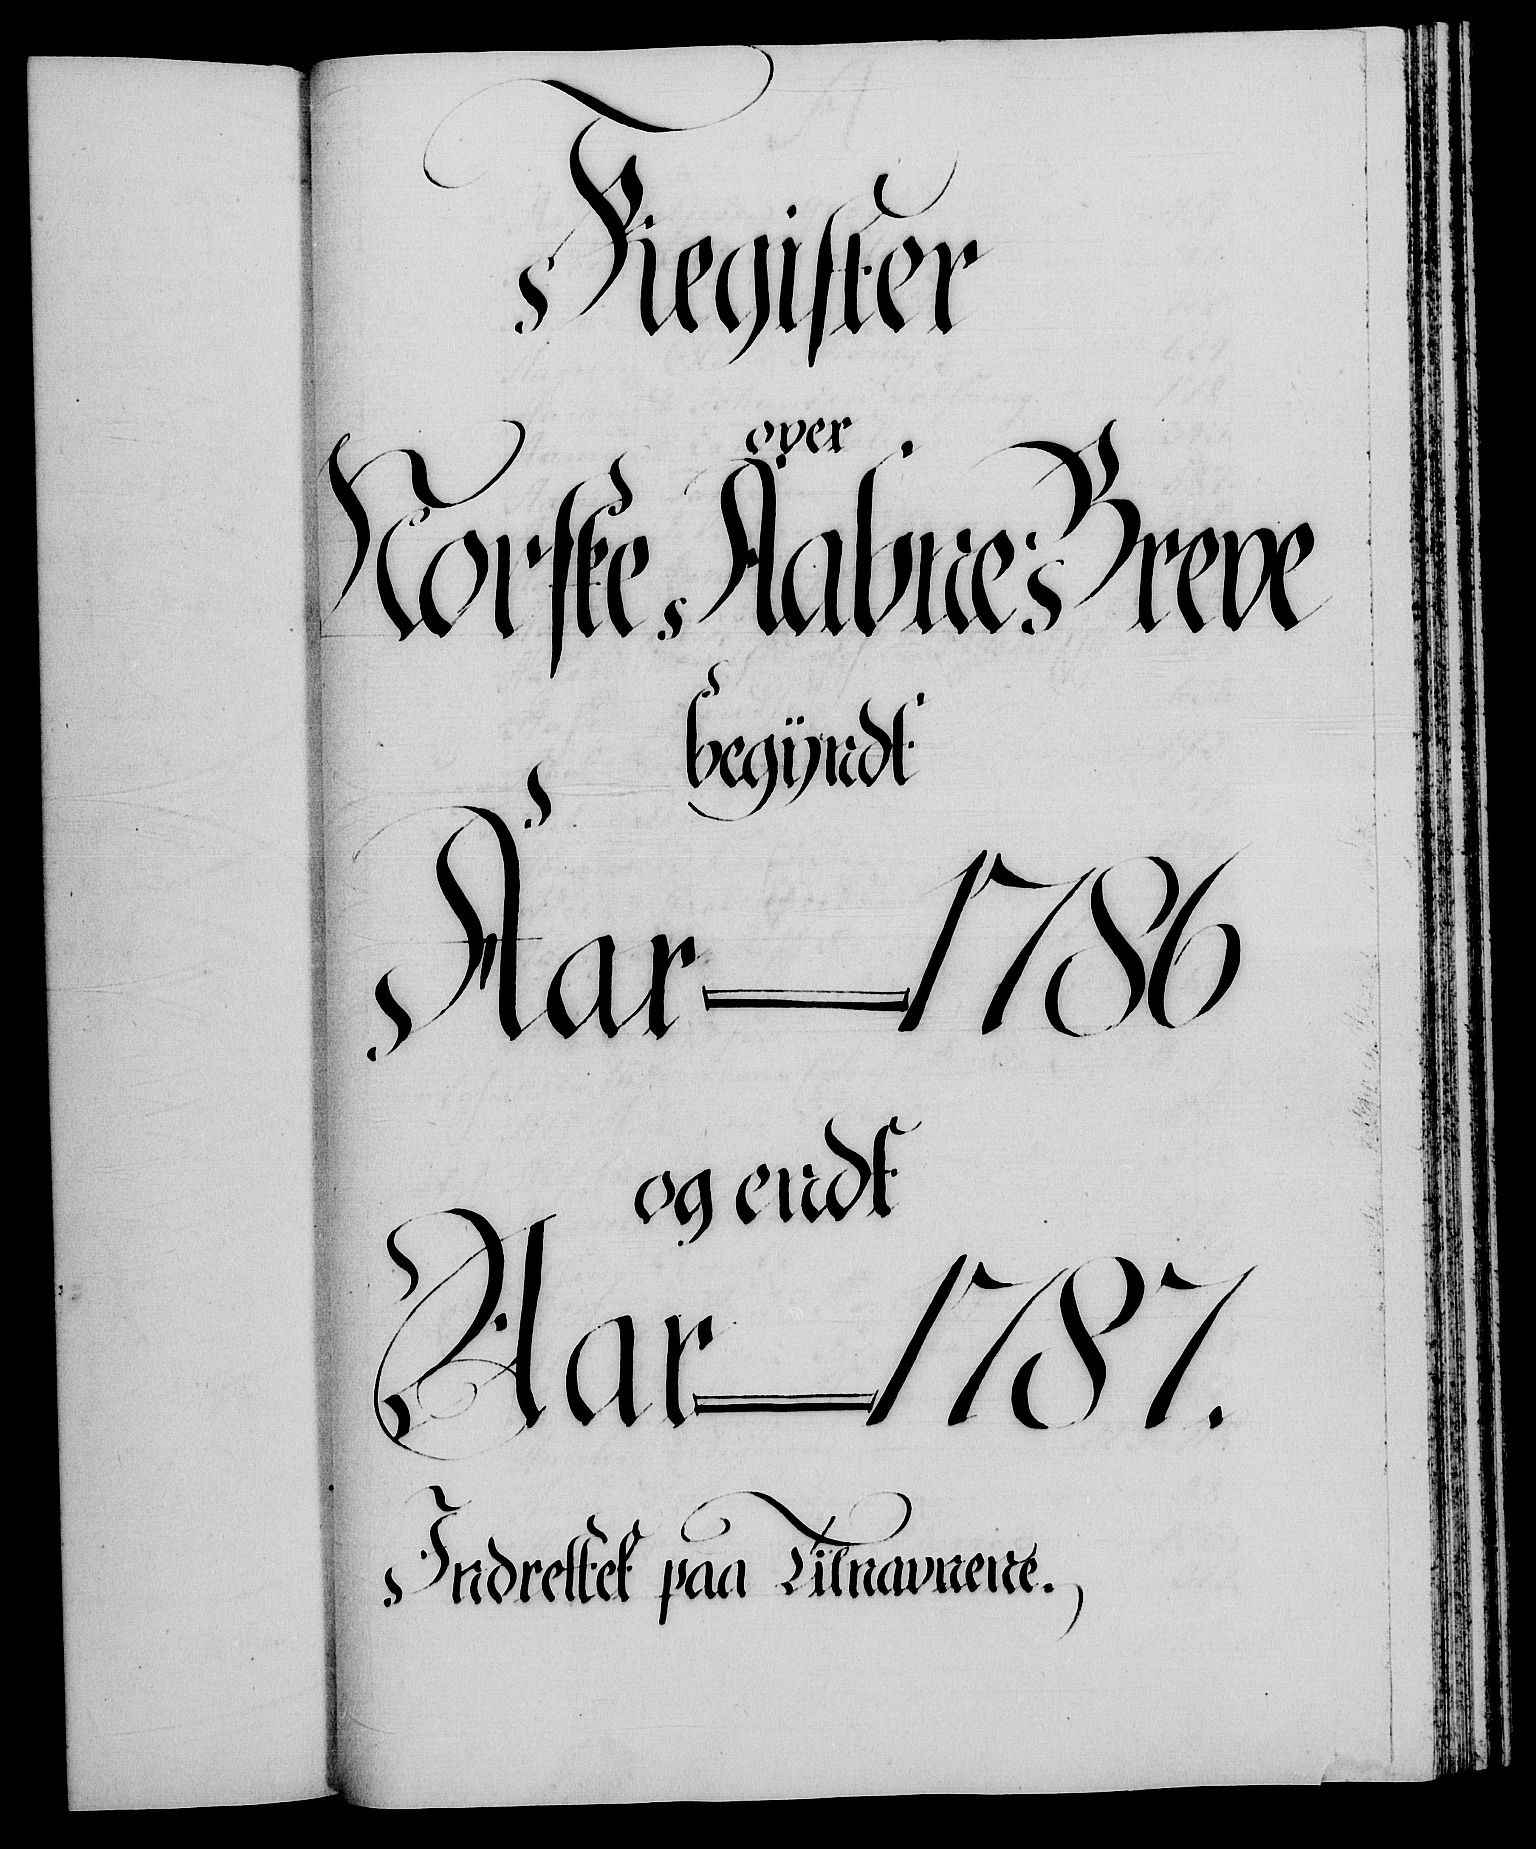 Register
over
Norske Aabne Breve
begÿndt
Aar 1786
og endt
Aar 1787.
Indrettet paa Tilnavnene.